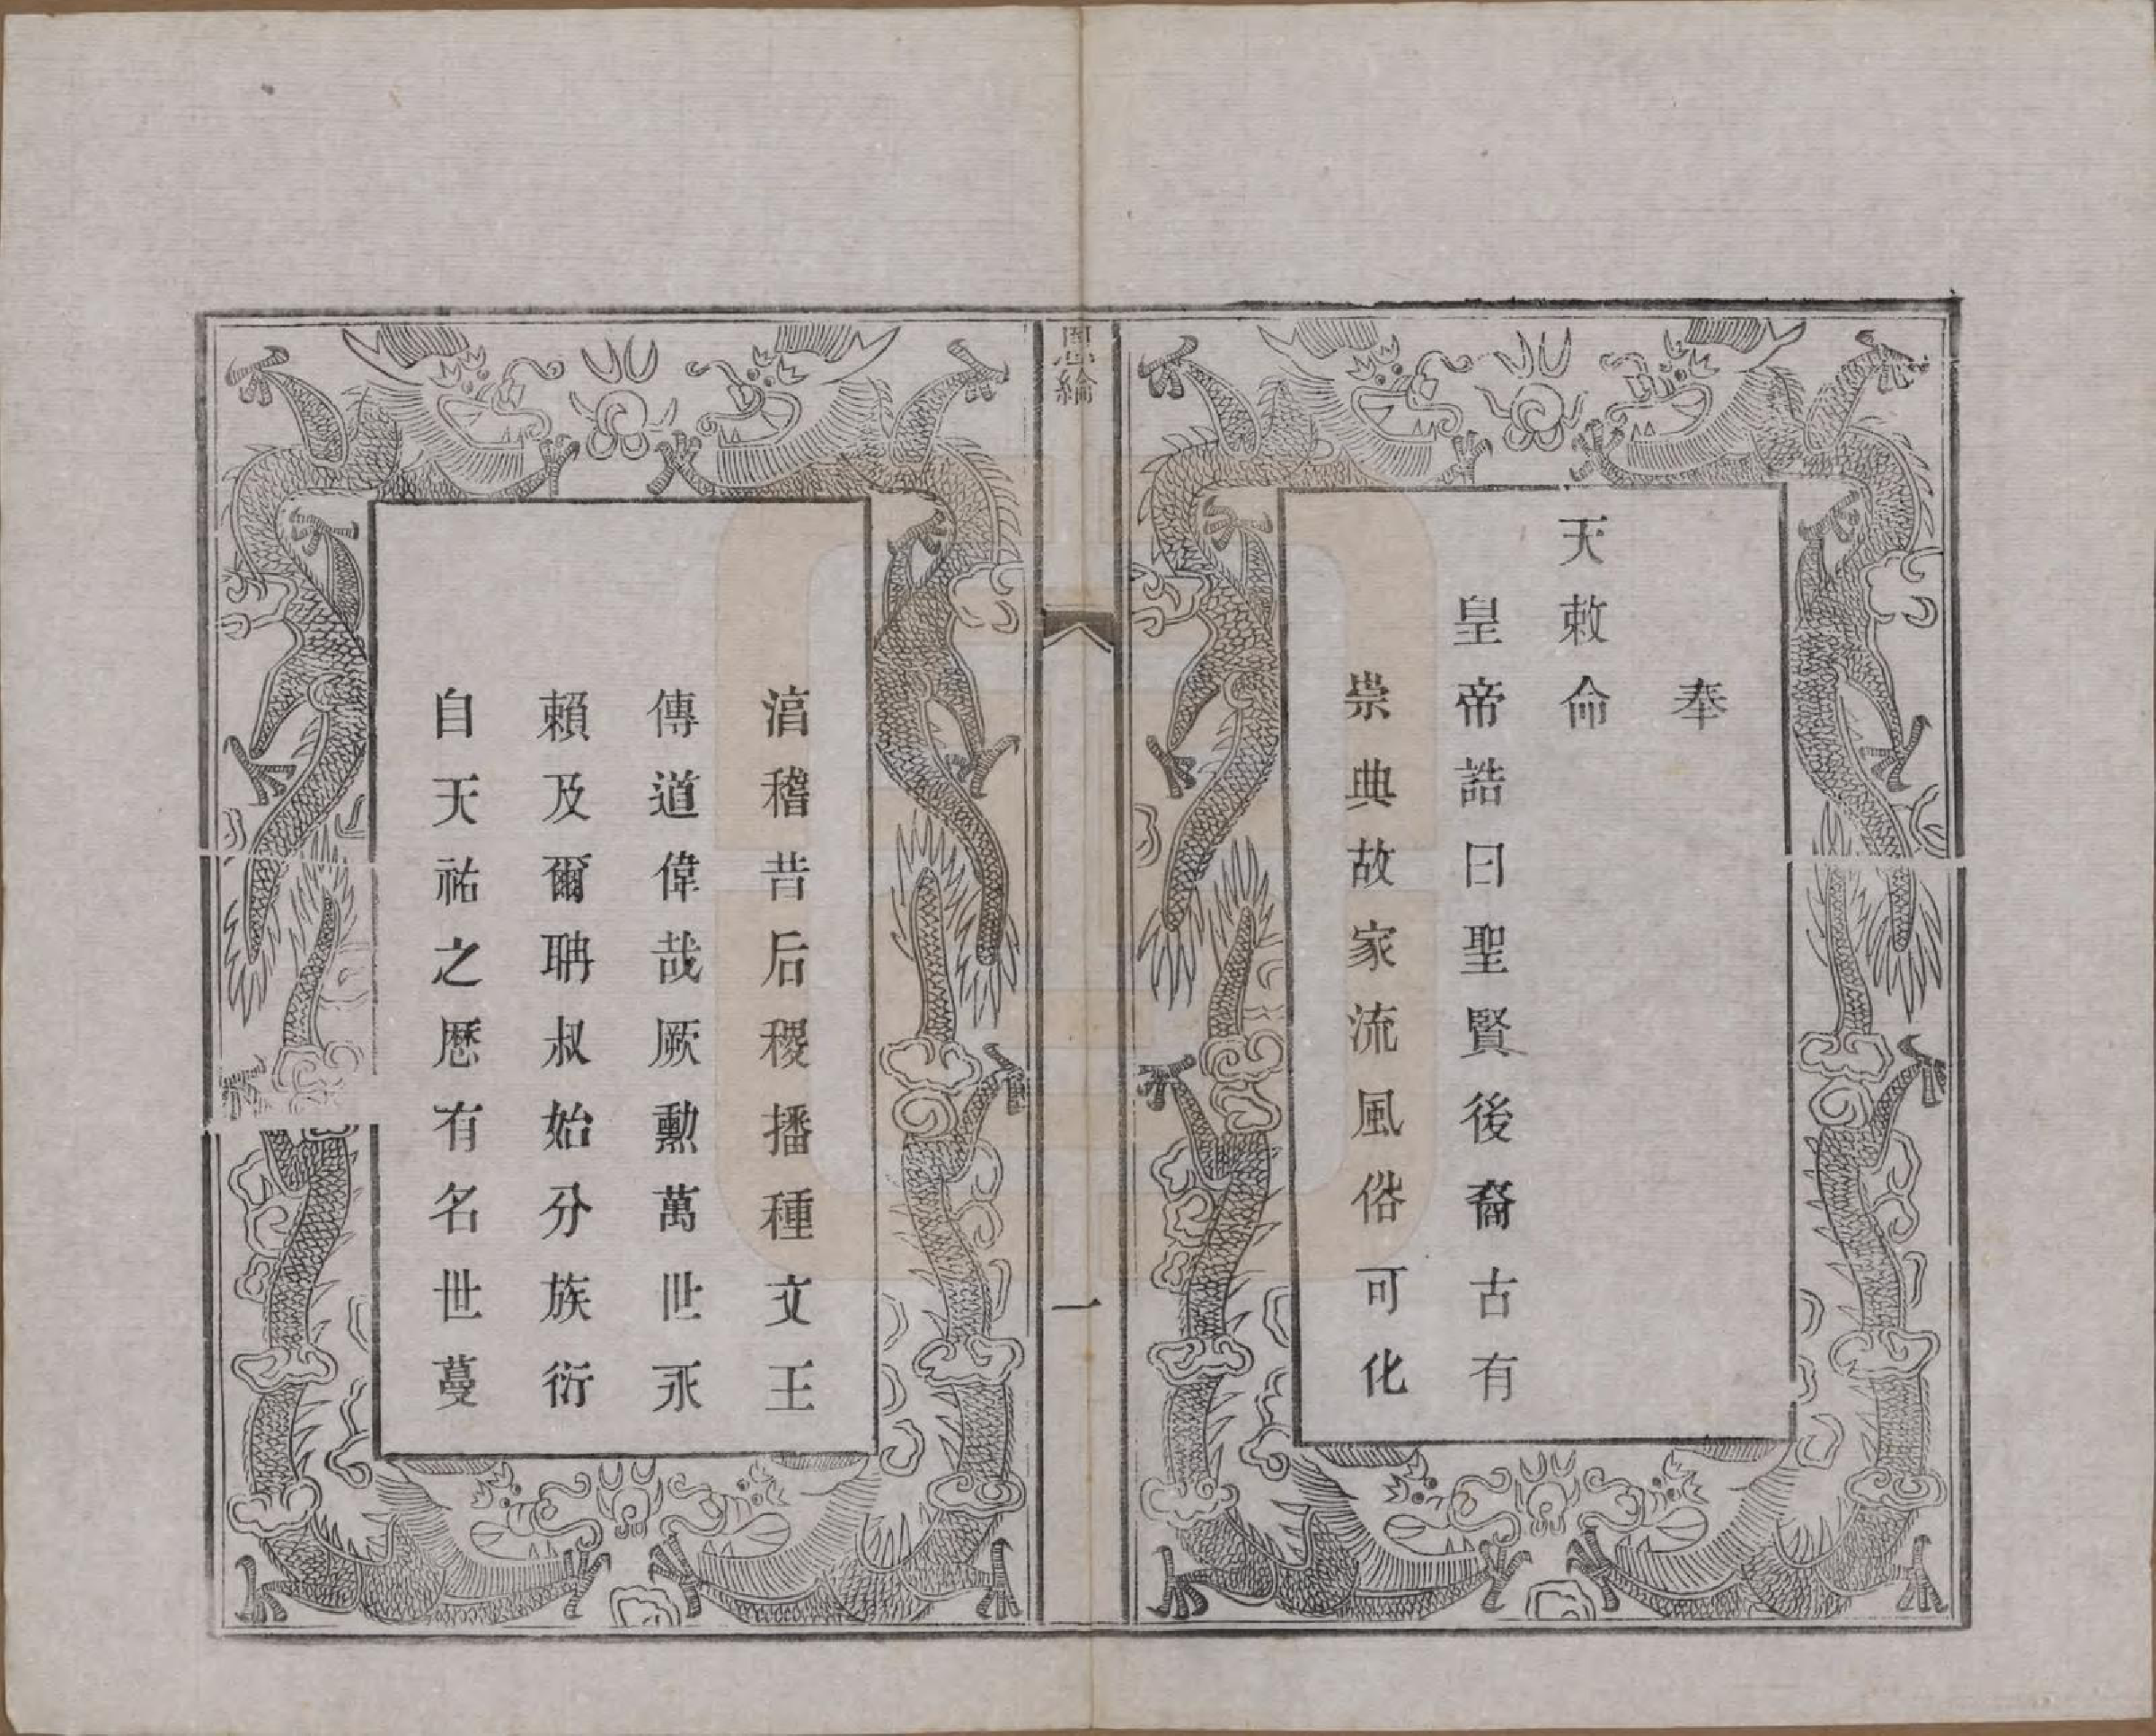 奉
天敕命
皇帝誥曰聖賢後裔古有
崇典故家流風俗可化
恩綸
一
湻稽昔后稷播種文王
傳道偉哉厥勳萬世永
賴及爾聃叔始分族衍
自天祐之厯有名世蔓